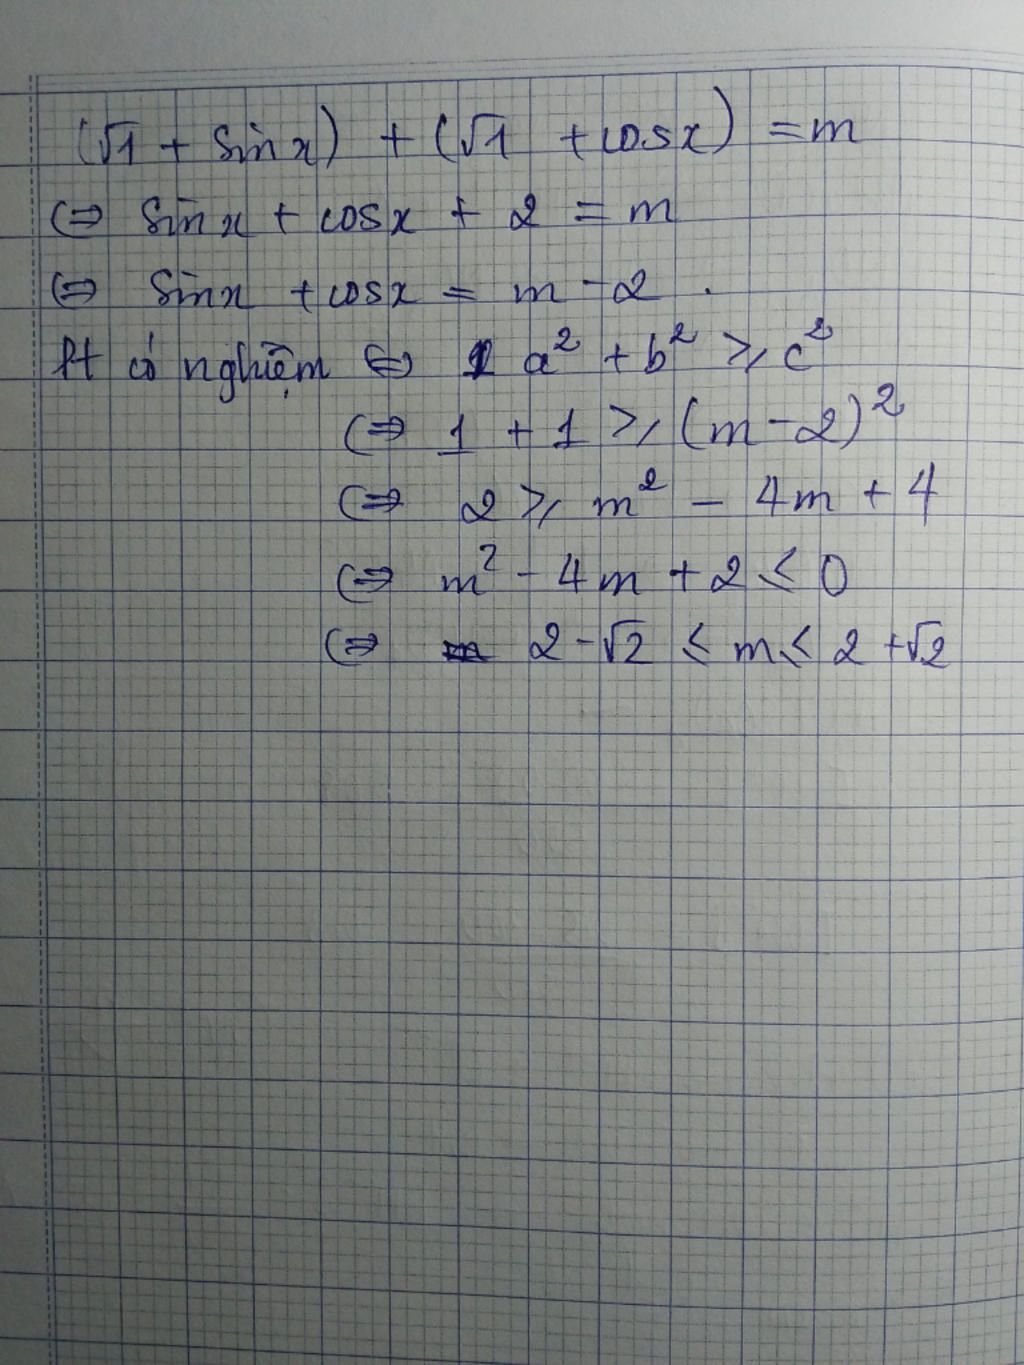 (√1 + sin x) + (√1 + cosx) = m
⇔ sin x + cosx + 2 = m
⇔ sinx + cosx = m - 2 .
Pt có nghiệm ⇔ a² + b² ≥ c²
⇔ 1 + 1 ≥ (m - 2)²
⇔ 2 ≥ m² - 4m + 4
⇔ m² - 4m + 2 ≤ 0
⇔ 2 - √2 ≤ m ≤ 2 + √2